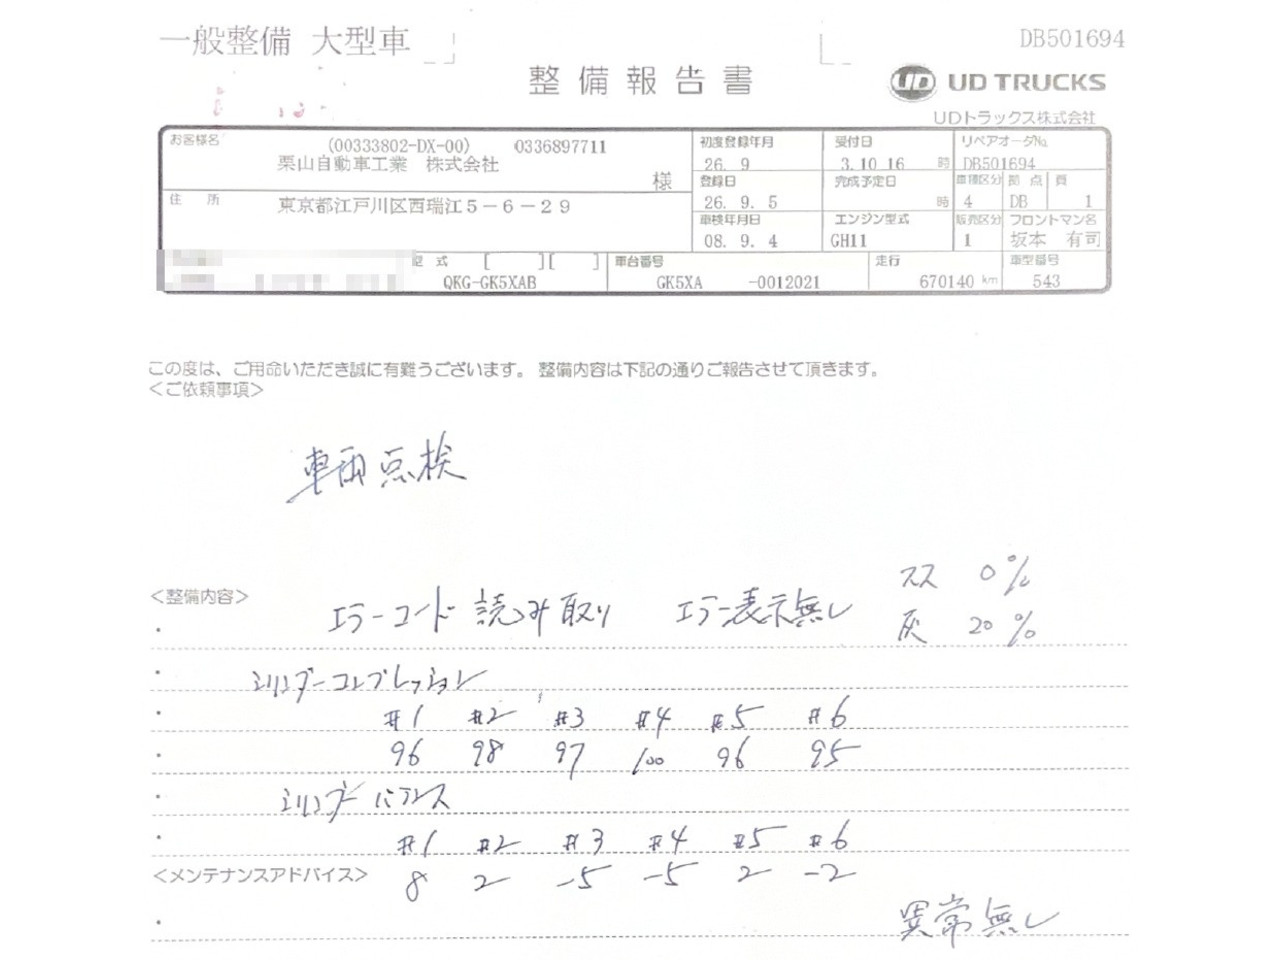 一般整備 大型車
DB501694
整備報告書
UD TRUCKS
UDトラックス株式会社
お客様名 (00333802-DX-00) 0336897711
栗山自動車工業 株式会社
様
住 所 東京都江戸川区西瑞江5-6-29
初度登録年月 受付日 リペアオーダNo.
26. 9 3.10.16 時 DB501694
登録日 完成予定日 車種区分 拠 点 頁
26. 9. 5 時 4 DB 1
車検年月日 エンジン型式 販売区分 フロントマン名
08. 9. 4 GH11 1 坂本 有司
型 式 [ ][ ] 車台番号 走行 車型番号
QKG-GK5XAB GK5XA -0012021 670140 km 543
この度は、ご用命いただき誠に有難うございます。 整備内容は下記の通りご報告させて頂きます。
<ご依頼事項>
車両点検
<整備内容>
エラーコード読み取り エラー表示無し
スス 0%
灰 20%
シリンダーコンプレッション
#1 #2 #3 #4 #5 #6
96 98 97 100 96 95
シリンダーバランス
#1 #2 #3 #4 #5 #6
<メンテナンスアドバイス>
8 2 -5 -5 2 -2
異常無し